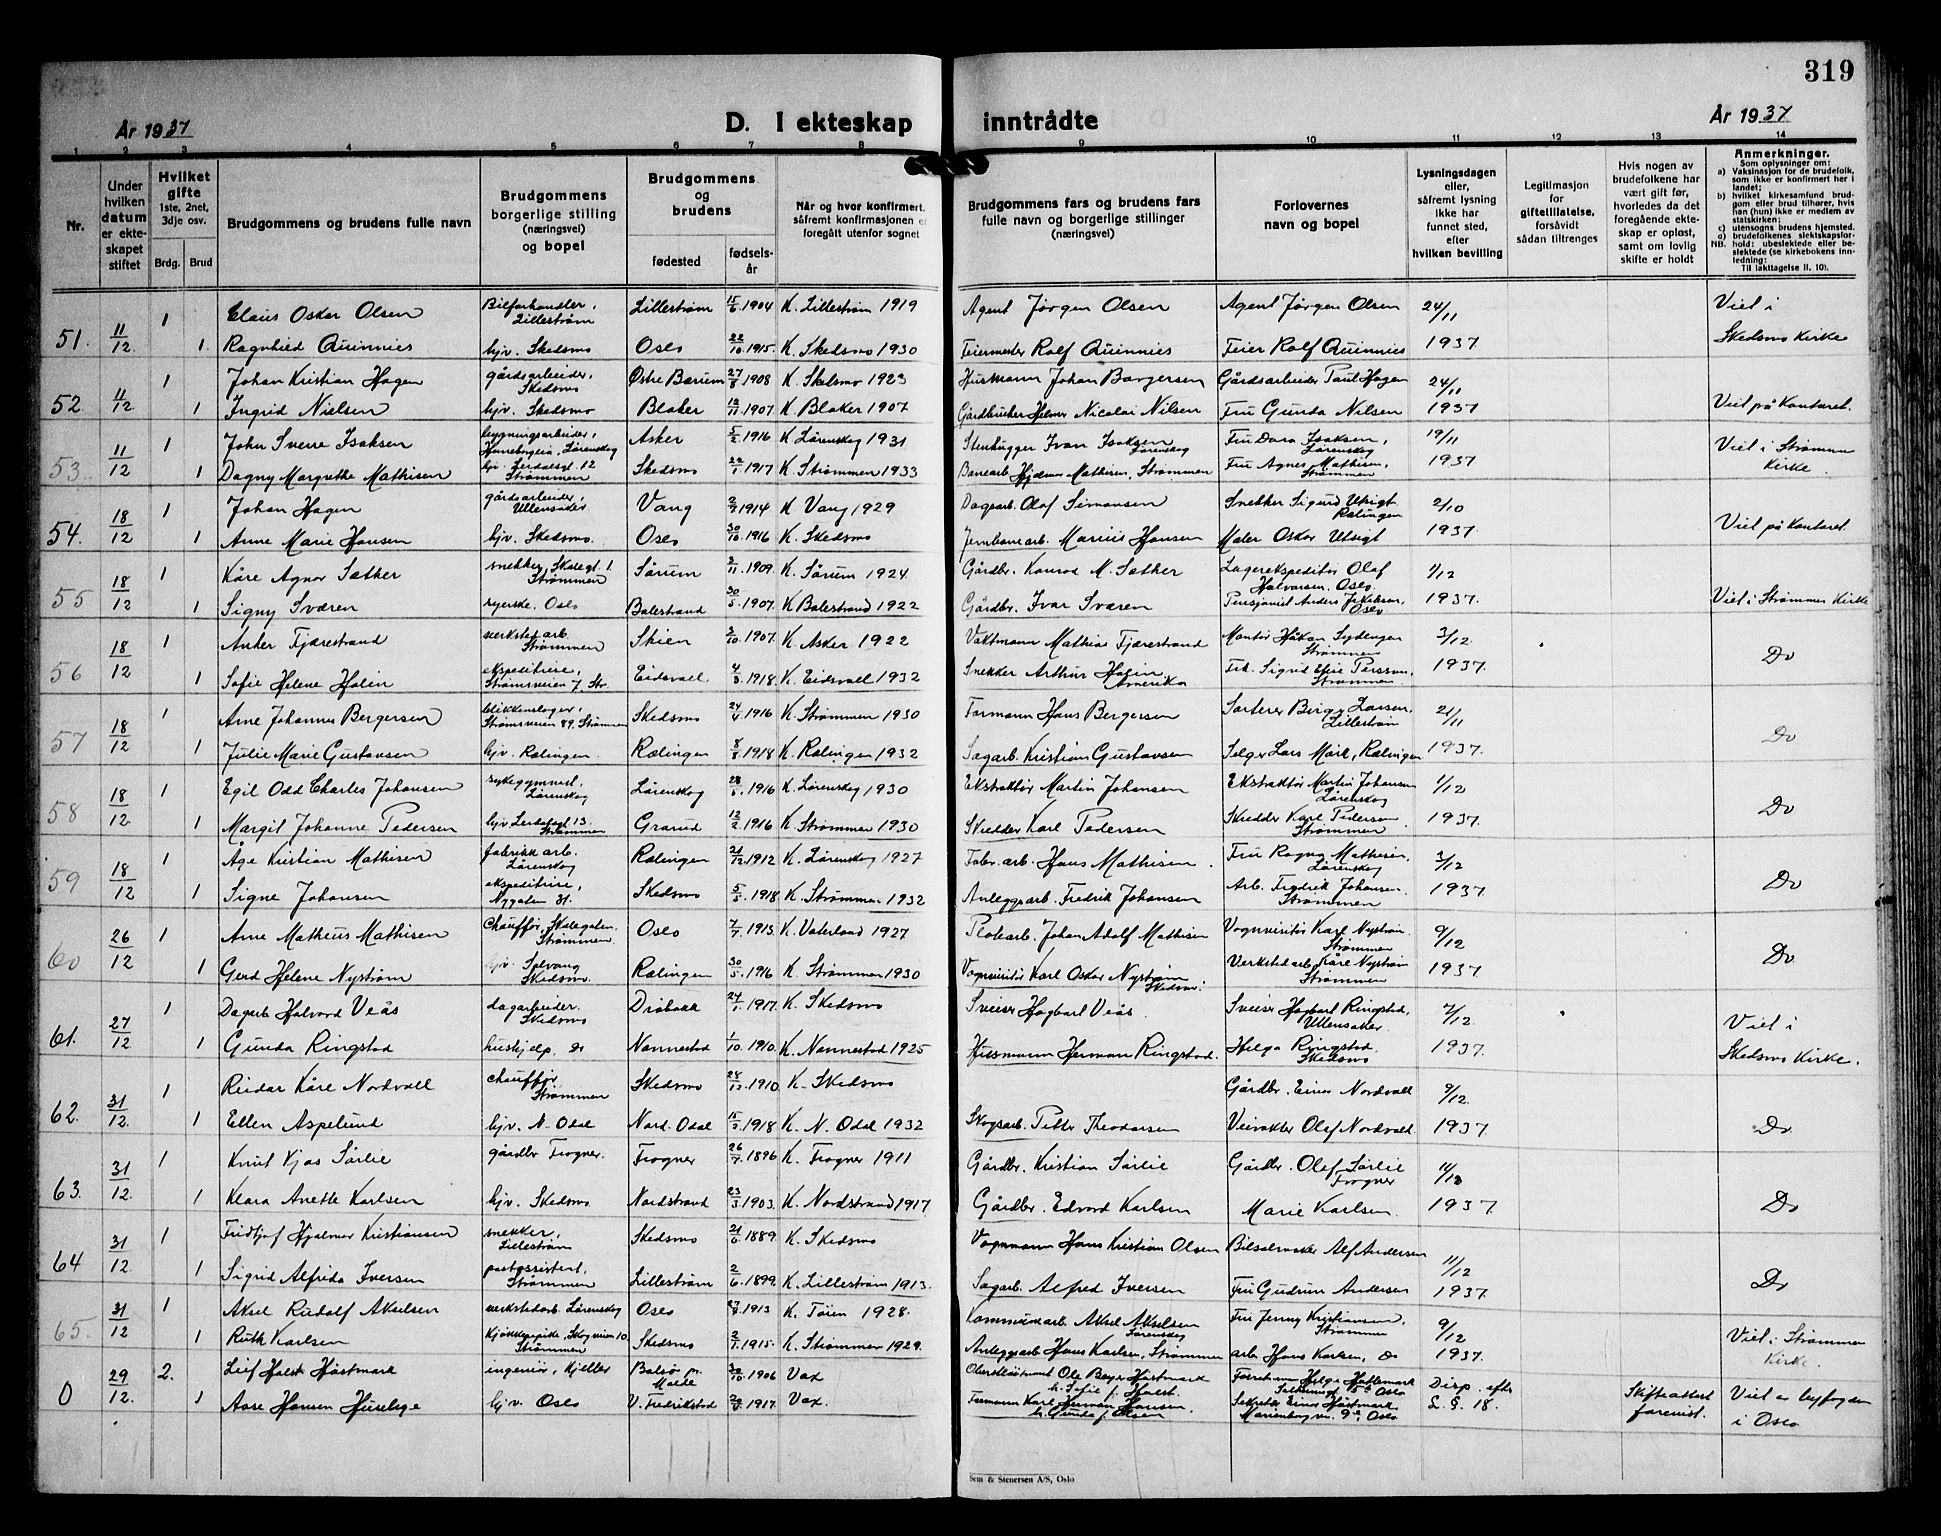 319
År 1937
D. I ekteskap inntrådte
År 1937
1 2 3 4 5 6 7 8 9 10 11 12 13 14
Nr.
Under hvilken datum er ekteskapet stiftet
Hvilket gifte 1ste, 2net, 3dje osv.
Brdg. Brud
Brudgommens og brudens fulle navn
Brudgommens borgerlige stilling (næringsvei) og bopel
Brudgommens og brudens
fødested
fødselsår
Når og hvor konfirmert, såfremt konfirmasjonen er foregått utenfor sognet
Brudgommens fars og brudens fars fulle navn og borgerlige stillinger (næringsvei)
Forlovernes navn og bopel
Lysningsdagen eller, såfremt lysning ikke har funnet sted, efter hvilken bevilling
Legitimasjon for giftetillatelse, forsåvidt sådan tiltrenges
Hvis nogen av brudefolkene har vært gift før, hvorledes da det foregående ekteskap er opløst, samt om lovlig skifte er holdt
Anmerkninger.
Som oplysninger om:
a) Vaksinasjon for de brudefolk, som ikke er konfirmert her i landet;
b) hvilket kirkesamfund brudgom eller brud tilhører, hvis han (hun) ikke er medlem av statskirken;
c) utensogns brudens hjemsted.
d) brudefolkenes slektskapsforhold: ubeslektede eller beslektede (se kirkebokens innledning:
NB. Til iakttagelse II. 10).
51. 11/12 1 Claus Oskar Olsen Bilforhandler, Lillestrøm Lillestrøm 15/6 1904 K. Lillestrøm 1919 Agent Jørgen Olsen Agent Jørgen Olsen 24/11 Viet i
1. Ragnhild Quinnies hjv. Skedsmo Oslo 22/10 1915 K. Skedsmo 1930 Feiermester Rolf Quinnies Feier Rolf Quinnies 1937. Skedsmo Kirke
52. 11/12 1 Johan Kristian Hagen gårdsarbeider, Skedsmo Østre Bærum 27/8 1908 K. Skedsmo 1923 Husmann Johan Borgersen Gårdsarbeider Paul Hagen 24/11
1 Ingrid Nielsen hjv. Skedsmo Blaker 12/11 1907 K. Blaker 1907 Gårdbruker Helmer Nicolai Nilsen Fru Gunda Nilsen 1937 Viet på Kontoret.
53 11/12 1 John Sverre Isaksen bygningsarbeider, Lørenskog Asker 5/2 1916 K Lørenskog 1931 Stenhugger Ivar Isaksen Lørenskog Fru Dora Isaksen, Lørenskog 19/11 Viet i Strømmen
1 Dagny Margrethe Mathisen hjv. Lerdalsgt 12 Strømmen Skedsmo 22/1 1917 K Strømmen 1933 Banearb. Hjalmar Mathisen, Strømmen Fru Agnes Mathisen, Strømmen 1937 Kirke.
54. 18/12 1 Johan Hagen gårdsarbeider, Ullensaker Vang 2/7 1914 K Vang 1929 Dagarb. Olof Simonsen Snekker Sigurd Utsigt Rælingen 2/10
1 Anne Marie Hansen hjv. Skedsmo. Oslo 30/10 1916 K. Skedsmo Jernbanearb. Marius Hansen Maler Oskar Utsigt 1937. Viet på Kontoret.
55 18/12 1 Kåre Agnor Sæther snekker, Skolegt. 1. Strømmen Sørum 2/11 1909. K. Sørum 1924. Gårdbr. Konrad M. Sæther Lagerekspeditør Olaf Halvorsen, Oslo. 1/12
1 Signy Sværen syerske. Oslo Balestrand 30/5 1907. K Balestrand 1922 Gårdbr. Ivar Sværen Pensjonist Anders Oslo 1937. Viet i Strømmen Kirke
56 18/12 1 Anker Fjærestrand verksted arb. Strømmen Skien 3/10 1907. K. Asker 1922 Vaktmann Mathias Fjærestrand Montør Håkon Strømmen 3/12
1 Sofie Helene Holin ekspeditrise, Strømsveien 7, Str. Eidsvoll 4/3 1918. K. Eidsvoll 1932 Snekker Arthur Holin Amerika Frk. Sigrid Elise Persson, Strømmen. 1937. Do
57 18/12 1 Arne Johannes Bergersen blikkenslager, Strømsveien 89, Strømmen Skedsmo 24/4 1916 K. Strømmen 1930 Formann Hans Bergersen Sorterer Birger Larsen, Lillestrøm 21/11
1 Julie Marie Gustavsen hjv. Rælingen. Rælingen 8/8 1918 K Rælingen 1932 Sagarb. Kristian Gustavsen Selger Lars Mørk, Rælingen 1937. Do
58 18/12 1 Egil Odd Charles Johansen sykegymnast. Lørenskog Lørenskog 28/5 1916 K. Lørenskog 1930 Ekstraktør Martin Johansen Ekstraktør Martin Johansen Lørenskog 1/12
1 Margit Johanne Pedersen hjv Lerdalsgt 13. Strømmen Grorud 12/2 1916 K. Strømmen 1930 Skredder Karl Pedersen Skredder Karl Pedersen Strømmen 1937. Do
59 18/12 1 Åge Kristian Mathisen fabrikkarb. Lørenskog Rælingen 21/12 1912 K. Lørenskog 1927 Fabr. arb. Hans Mathisen. Fru Ragna Mathisen, Lørenskog 3/12
1 Signe Johansen ekspeditrise, Nygaten 31. Skedsmo 5/5 1918 K. Strømmen 1932 Anleggsarb. Fredrik Johansen Arb. Fredrik Johansen. Strømmen 1937. Do
60 26/12 1 Arne Matheus Mathisen Chauffør, Skolegaten. Strømmen Oslo 7/7 1913. K. Vaterland 1927 Platearb. Johan Adolf Mathisen Vognvisitør Karl Nystrøm Strømmen 9/12
1 Gerd Helene Nystrøm hjv. Solvang Skedsmo. Rælingen 30/5 1916 K. Strømmen 1930 Vognvisitør Karl Oskar Nystrøm Skedsmo. Verkstedarb. Kåre Nystrøm Strømmen 1937. Do
61. 27/12 1 Dagarb Halvord Veås dagarbeider. Skedsmo Drøbakk 24/1 1917. K. Skedsmo Sveiser Hagbart Veås. Sveiser Hagbart Ringstad, Ullensaker. 7/12. Viet i
1 Gunda Ringstad hushjelp. Do Nannestad 1/10 1910. K. Nannestad 1925 Husmann Herman Ringstad. Helga Ringstad. Skedsmo 1937. Skedsmo Kirke.
62. 31/12. 1 Reidar Kåre Nordvall chauffør Strømmen Skedsmo 28/12 1910. K. Skedsmo Gårdbr. Einar Nordvall 9/12.
1 Ellen Aspelund hjv. N. Odal Nord. Odal 15/3 1918 K. N. Odal 1932 Skogsarb. Petter Theodorsen Veivokter Olaf Nordvall. 1937. Do
63. 31/12. 1 Knut Kjos Sørlie gårdbr Frogner. Frogner 26/7 1896 K. Frogner 1911 Gårdbr. Kristian Sørlie Gårdbr. Olaf Sørlie Frogner 14/12
1 Klara Anette Karlsen hjv. Skedsmo Nordstrand 23/3 1903. K. Nordstrand 1917 Gårdbr. Edvard Karlsen Marie Karlsen. 1937. Do
64 31/12 1 Fridtjof Hjalmar Kristiansen snekker, Lillestrøm Skedsmo 21/6 1889 K. Skedsmo Vognmann Hans Kristian Olsen Bilsalmaker Alf Andersen 11/12
1 Sigrid Alfrida Iversen postassistent, Strømmen Lillestrøm 2/6 1899. K. Lillestrøm 1913. Sagarb. Alfred Iversen Fru Gudrun Andersen 1937. Do
65. 31/12 1 Aksel Rudolf Akselsen verkstedarb. Lørenskog Oslo 27/9 1913 K. Tøien 1928. Kommunearb. Aksel Akselsen Lørenskog Fru Jenny Kristiansen, Strømmen 9/12 Viet i Strømmen
1 Ruth Karlsen Kjøkkenpike, Skogveien 10. Strømmen Skedsmo 2/7 1915. K. Strømmen 1929. Anleggsarb Hans Karlsen, Strømmen arb. Hans Karlsen, Do 1937. Kirke.
0 29/12. 2. Leif Holst Håstmark ingeniør, Kjeller Molde 30/10 1906 Vax Oberstløitnant Ole Håstmark h. Sofie f. Holst. Helge 5a Oslo Disp. efter Skifteattest Viet av byfogden
1 Aase Hansen Huselege hjv. Oslo V. Fredrikstad 1917. Vax. Formann Karl Herman Hansen. h. Gunda f. Olsen Sekretær Einar Håstmark Marienborgvn. 9e, Oslo L. §. 18. forevist. i Oslo
Sem & Stenersen A/S, Oslo